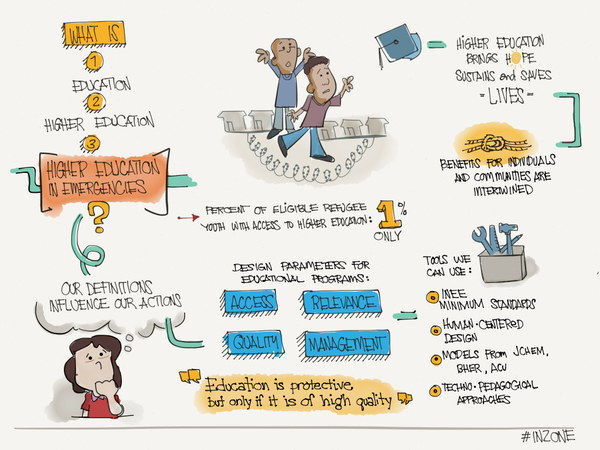 WHAT IS
1
EDUCATION
2
HIGHER EDUCATION
3
HIGHER EDUCATION
IN EMERGENCIES
?
OUR DEFINITIONS
INFLUENCE OUR ACTIONS
HIGHER EDUCATION
BRINGS HOPE
SUSTAINS and SAVES
- LIVES -
BENEFITS FOR INDIVIDUALS
AND COMMUNITIES ARE
INTERTWINED
PERCENT OF ELIGIBLE REFUGEE
YOUTH WITH ACCESS TO HIGHER EDUCATION:
1%
ONLY
DESIGN PARAMETERS FOR
EDUCATIONAL PROGRAMS:
ACCESS
RELEVANCE
QUALITY
MANAGEMENT
"Education is protective,
but only if it is of high quality"
TOOLS WE
CAN USE:
INEE
MINIMUM STANDARDS
HUMAN-CENTERED
DESIGN
MODELS FROM JCHEM,
BHER, ACU
TECHNO-PEDAGOGICAL
APPROACHES
#INZONE